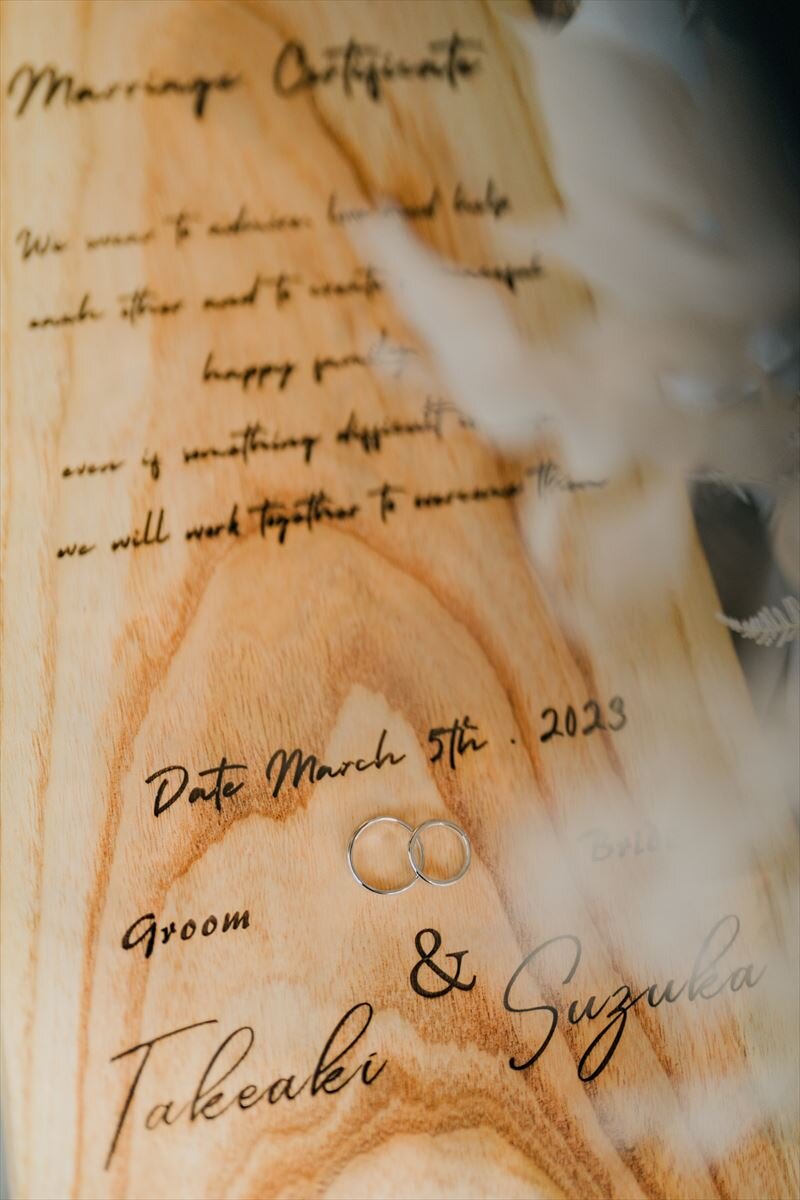 Marriage Certificate
We swear to admire, love and help
each other and to create a
happy family
even if something difficult
we will work together to overcome them
Date March 5th . 2023
Bride
Groom
&
Takeaki Suzuka